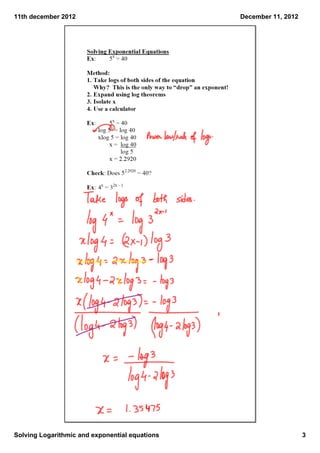 11th december 2012
December 11, 2012
Solving Exponential Equations
Ex: 5ˣ = 40
Method:
1. Take logs of both sides of the equation
Why? This is the only way to “drop” an exponent!
2. Expand using log theorems
3. Isolate x
4. Use a calculator
Ex: 5ˣ = 40
log 5ˣ = log 40
xlog 5 = log 40
Power law/rule of logs.
x = log 40
log 5
x = 2.2920
Check: Does 5^2.2920 = 40?
Ex: 4ˣ = 3^2x – 1
Take logs of both sides.
log 4ˣ = log 3^2x-1
xlog4 = (2x-1) log 3
xlog4 = 2xlog3 - log3
xlog4-2xlog3 = - log3
x(log4-2log3) = - log3
(log4-2log3) (log4-2log3)
x = - log3
log4-2log3
x = 1.35475
Solving Logarithmic and exponential equations
3